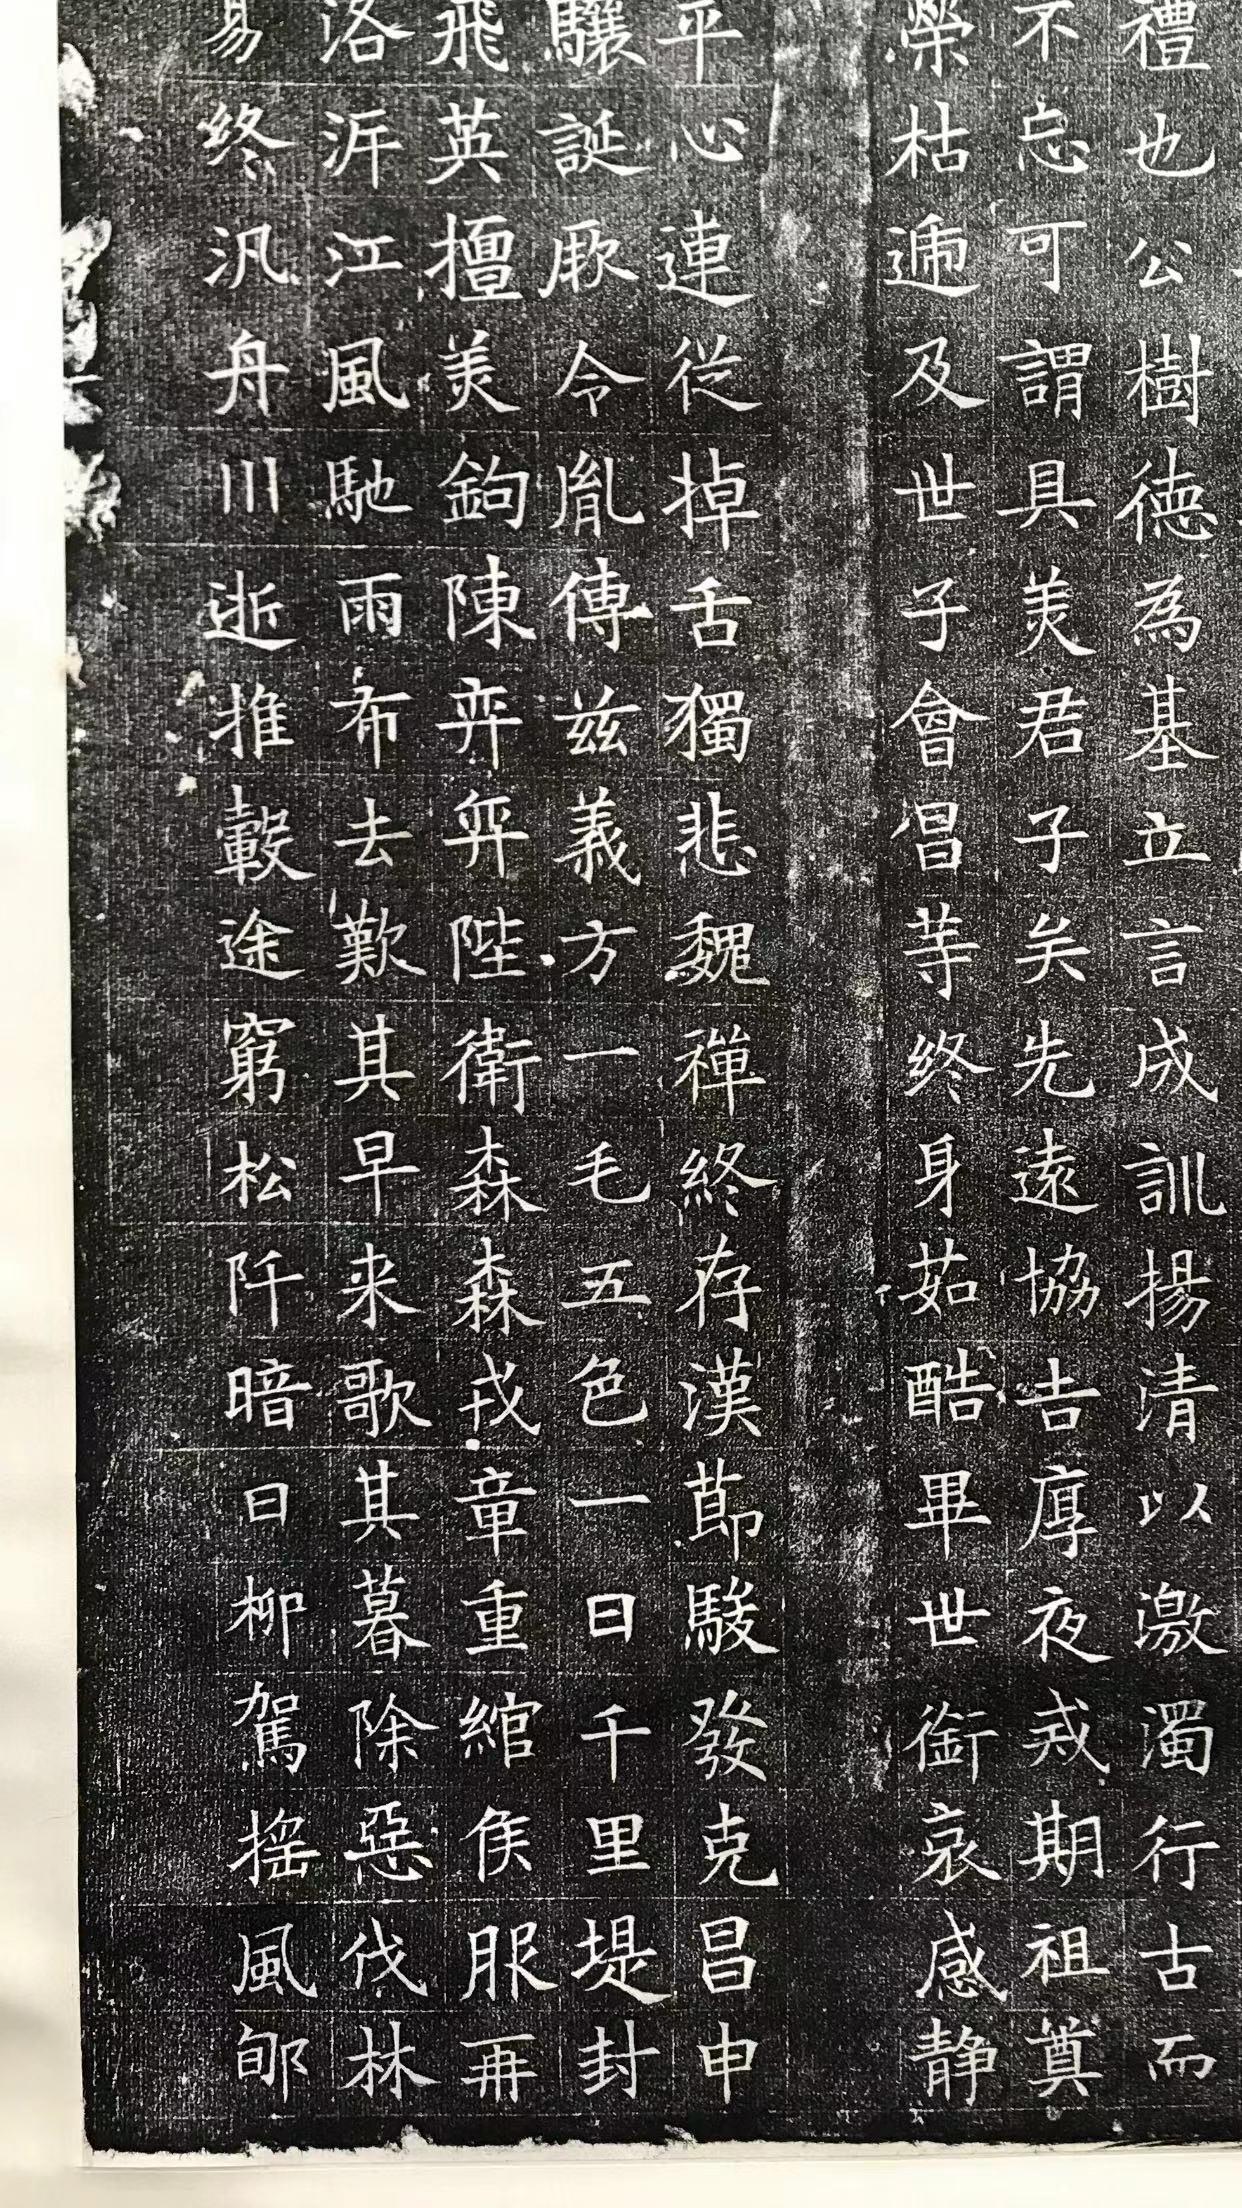 禮也公樹德為基立言成訓揚清以激濁行古而
不忘可謂具美君子矣先遠協吉厚夜戒期祖奠
榮枯遞及世子會昌等終身茹酷畢世銜哀感静
平心連從掉舌獨悲魏禪終存漢節駿發克昌申
驤誕厥令胤傳兹義方一毛五色一日千里堤封
飛英擅美鉤陳弈弈陛衛森森戎章重綰侯服再
洛汧江風馳雨布去歎其早来歌其暮除惡伐林
易終汎舟川逝推轂途窮松阡暗日柳駕摇風郇